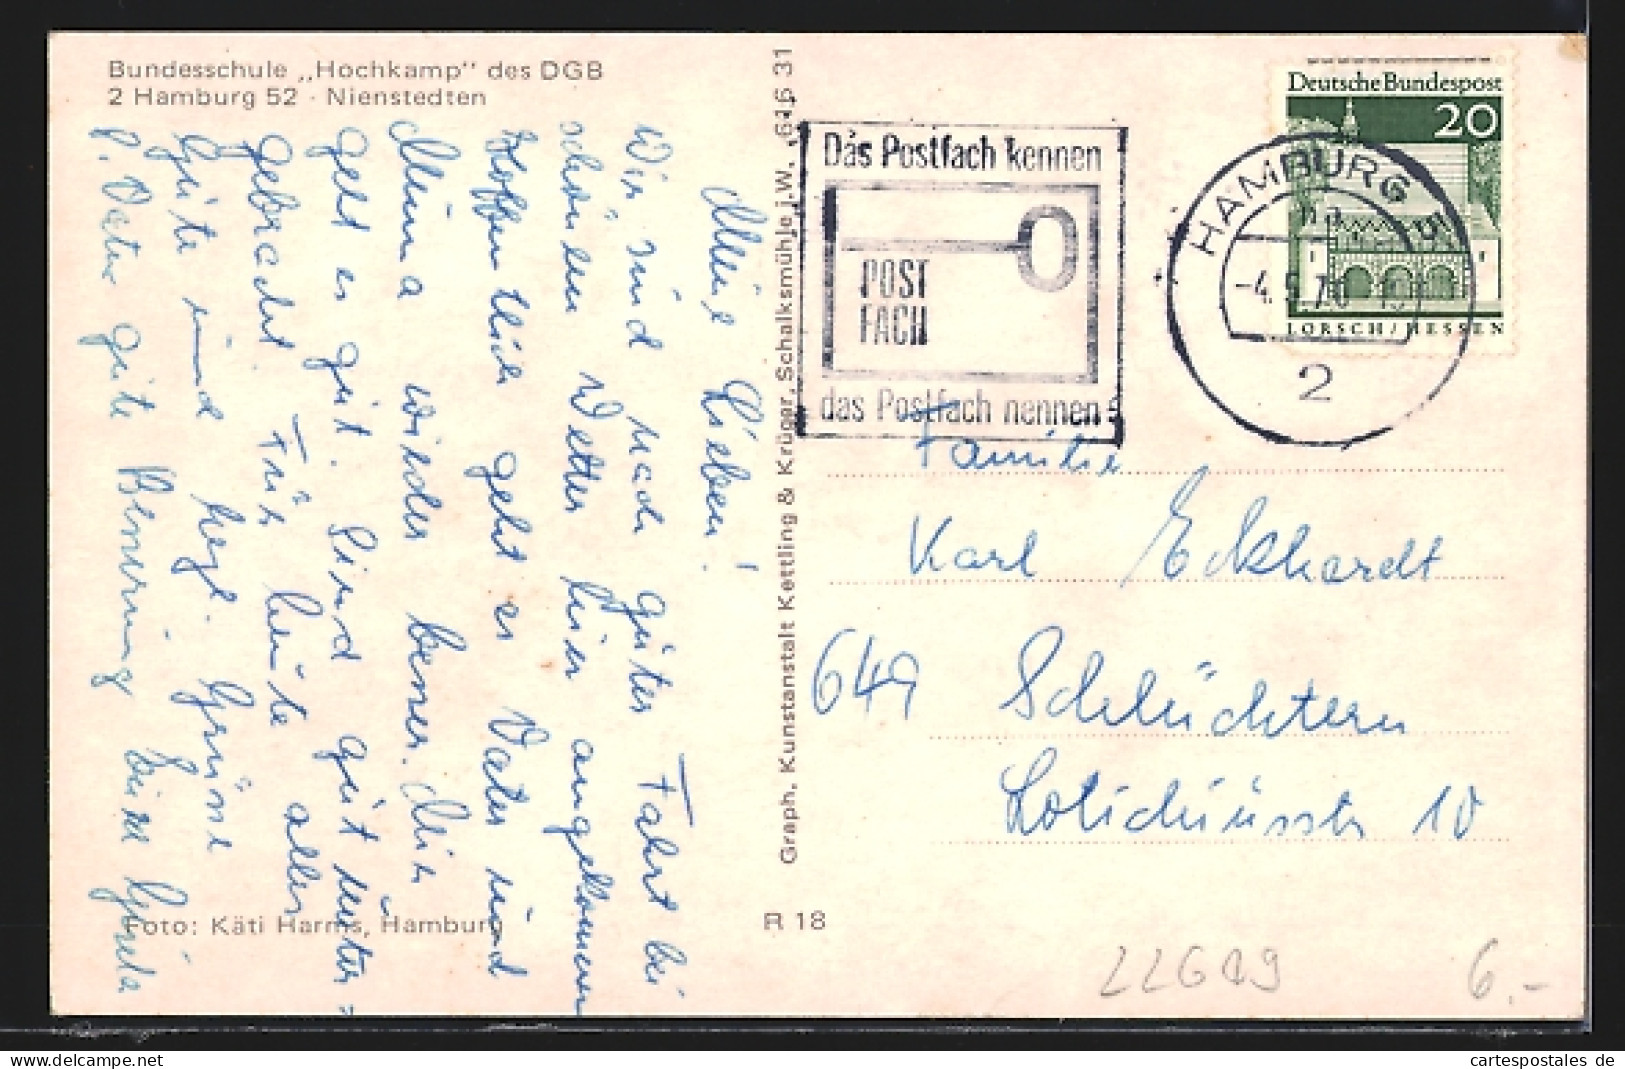 Bundesschule „Hochkamp" des DGB
2 Hamburg 52 · Nienstedten
Meine Lieben!
Wir sind nach guter Fahrt bei
schönem Wetter hier angekommen
Hoffentlich geht es Vater und
Mina wieder besser. Mich
geht es gut. Sind gut unter=
gebracht. Früh heute alles
Gute und herzl. Grüsse
P. Vater gute Besserung
Foto: Käti Harms, Hamburg
Graph. Kunstanstalt Kettling & Krüger, Schalksmühle i.W.
R 18
Das Postfach kennen
POST
FACH
das Postfach nennen
Deutsche Bundespost
20
LORSCH/HESSEN
HAMBURG
2
Familie
Karl Eckhardt
649 Schlüchtern
Lotichiusstr 10
6.-
cartespostales de